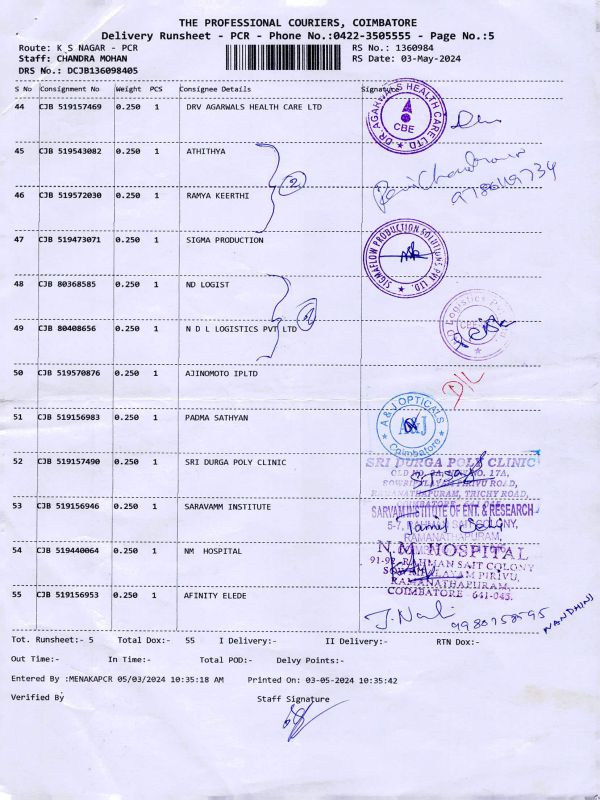 THE PROFESSIONAL COURIERS, COIMBATORE
Delivery Runsheet - PCR - Phone No.:0422-3505555 - Page No.:5
Route: K S NAGAR - PCR
RS No.: 1360984
Staff: CHANDRA MOHAN
RS Date: 03-May-2024
DRS No.: DCJB136098405
S No Consignment No Weight PCS Consignee Details Signature
44 CJB 519157469 0.250 1 DRV AGARWALS HEALTH CARE LTD
DR. AGARWALS HEALTH CARE LTD. CBE
45 CJB 519543082 0.250 1 ATHITHYA
2
46 CJB 519572030 0.250 1 RAMYA KEERTHI
47 CJB 519473071 0.250 1 SIGMA PRODUCTION
SIGMAFLOW PRODUCTION SOLUTIONS PVT LTD.
48 CJB 80368585 0.250 1 ND LOGIST
2
49 CJB 80408656 0.250 1 N D L LOGISTICS PVT LTD
Logistics
50 CJB 519570876 0.250 1 AJINOMOTO IPLTD
D/L
51 CJB 519156983 0.250 1 PADMA SATHYAN
A & J OPTICALS A&J Coimbatore
52 CJB 519157490 0.250 1 SRI DURGA POLY CLINIC
SRI DURGA POLY CLINIC
17A,
RAMANATHAPURAM, TRICHY ROAD,
53 CJB 519156946 0.250 1 SARAVAMM INSTITUTE
SARVAM INSTITUTE OF ENT. & RESEARCH
5-7, RAHMAN SAIT COLONY,
RAMANATHAPURAM,
Tamil Selvi
54 CJB 519440064 0.250 1 NM HOSPITAL
N.M. HOSPITAL
RAHMAN SAIT COLONY
PIRIVU,
RAMANATHAPURAM,
COIMBATORE 641-045.
55 CJB 519156953 0.250 1 AFINITY ELEDE
NANDHINI
Tot. Runsheet:- 5 Total Dox:- 55 I Delivery:- II Delivery:- RTN Dox:-
Out Time:- In Time:- Total POD:- Delvy Points:-
Entered By :MENAKAPCR 05/03/2024 10:35:18 AM Printed On: 03-05-2024 10:35:42
Verified By Staff Signature